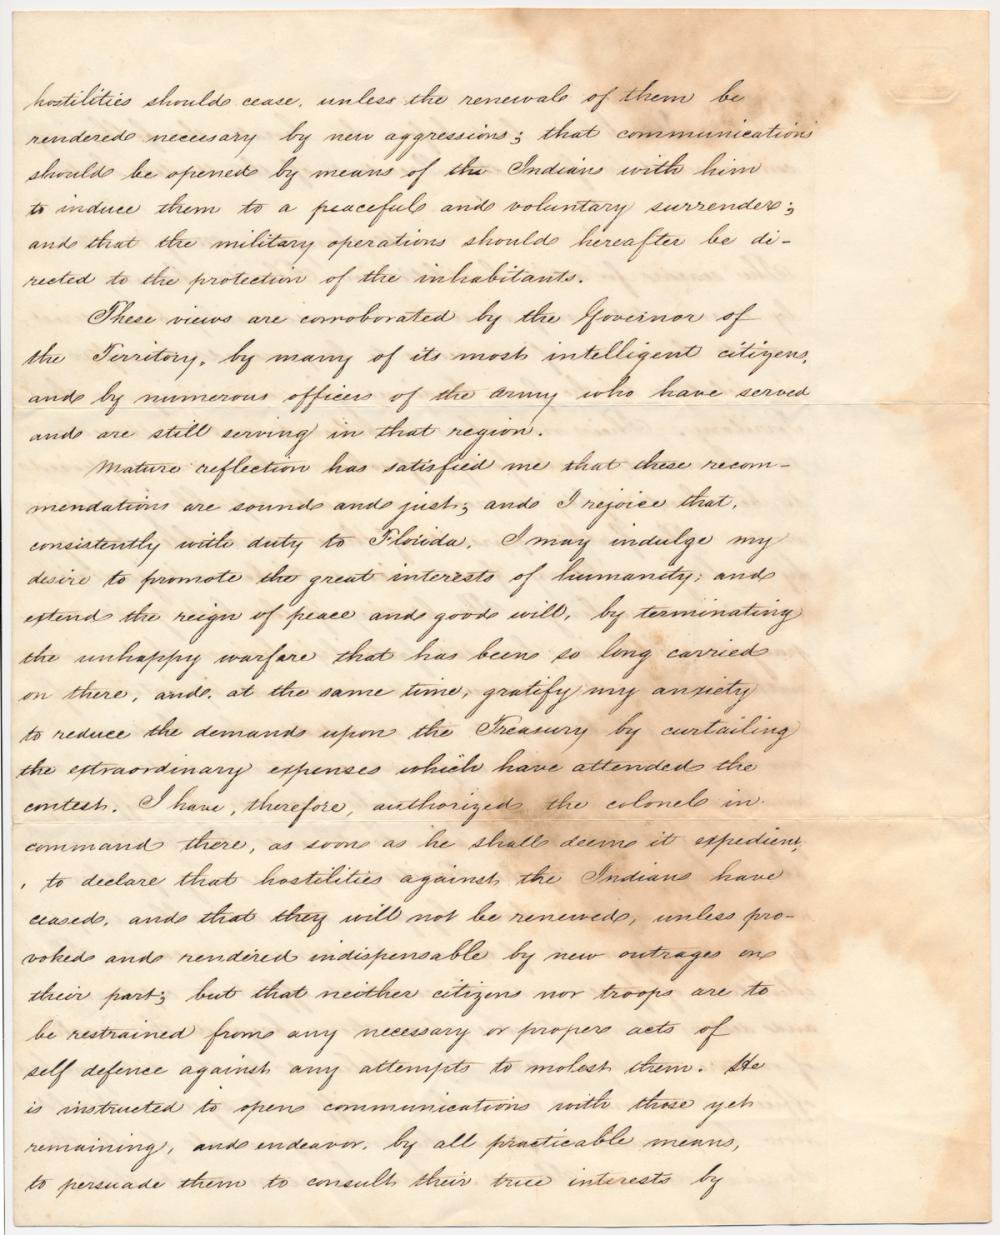 hostilities should cease, unless the renewal of them be
rendered necessary by new aggressions; that communications
should be opened by means of the Indians with him
to induce them to a peaceful and voluntary surrender;
and that the military operations should hereafter be di-
rected to the protection of the inhabitants.
These views are corroborated by the Governor of
the Territory, by many of its most intelligent citizens,
and by numerous officers of the army who have served
and are still serving in that region.
Mature reflection has satisfied me that these recom-
mendations are sound and just; and I rejoice that,
consistently with duty to Florida, I may indulge my
desire to promote the great interests of humanity, and
extend the reign of peace and good will, by terminating
the unhappy warfare that has been so long carried
on there, and, at the same time, gratify my anxiety
to reduce the demands upon the Treasury by curtailing
the extraordinary expenses which have attended the
contest. I have, therefore, authorized the colonel in
command there, as soon as he shall deem it expedient,
to declare that hostilities against the Indians have
ceased, and that they will not be renewed, unless pro-
voked and rendered indispensable by new outrages on
their part; but that neither citizens nor troops are to
be restrained from any necessary or proper acts of
self defence against any attempts to molest them. He
is instructed to open communications with those yet
remaining, and endeavor, by all practicable means,
to persuade them to consult their true interests by